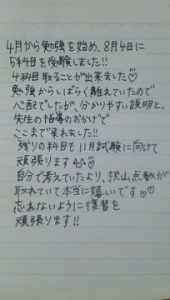 4月から勉強を始め、8月4日に
5科目を受験しました!!
4科目取ることが出来ました♡
勉強からしばらく離れていたので
心配でしたが、分かりやすい説明と、
先生の指導のおかげで
ここまで来れました!!
残りの科目も11月試験に向けて
頑張ります
自分で考えていたより、沢山点数が
取れていて本当に嬉しいです♡
忘れないように復習を
頑張ります!!